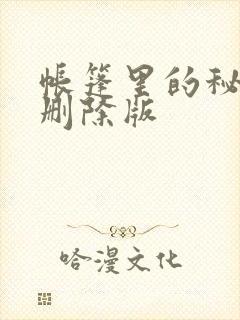 帐篷里的秘
删除版
哈漫文化